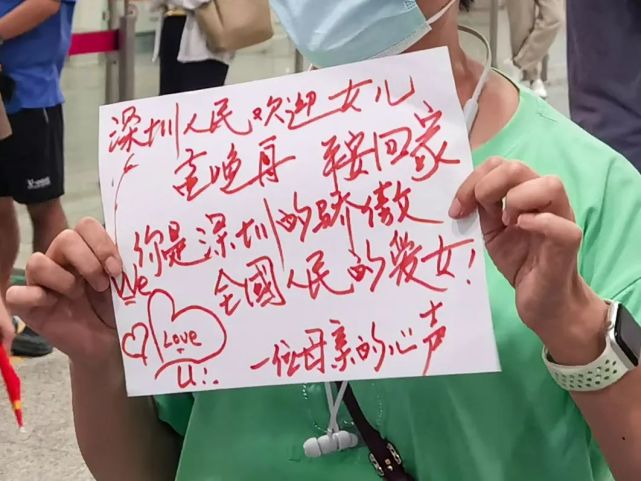 深圳人民欢迎女儿
孟晚舟 平安回家
你是深圳的骄傲
全國人民的爱女!
We
Love
U!
一位母亲的心声